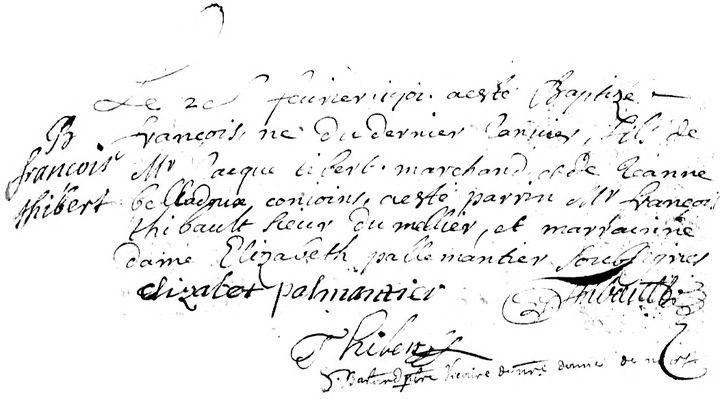 B
françois
thibert
Le 2e fevrier 1701 aesté Baptizé
françois, né du dernier Janvier, fils de
Mr Jacque tibert marchand et de Jeanne
belladoux conioins, aesté parrin Mr françois
thibault sieur du mallier, et marrainne
dame Elizabeth pallemantier soubsignes
elizabet palmantier Thibault
Thibert
Vicaire de nre dame de niort